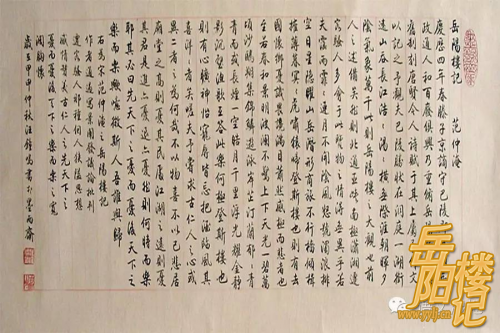 岳陽樓記 范仲淹
慶曆四年春滕子京謫守巴陵郡
政通人和百廢俱興乃重修岳陽樓
制刻唐賢今人詩賦于其上屬予作文
以記之予觀夫巴陵勝狀在洞庭一湖銜
遠山吞長江浩浩湯湯橫無際涯朝暉夕
陰氣象萬千此則岳陽樓之大觀也前
人之述備矣然則北通巫峽南極瀟湘遷
客騷人多會于此覽物之情得無異乎若
夫霪雨霏霏連月不開陰風怒號濁浪排
空日星隱曜山岳潛形商旅不行檣傾楫
摧薄暮冥冥虎嘯猿啼登斯樓也則有去
國懷鄉憂讒畏譏滿目蕭然感極而悲者也
至若春和景明波瀾不驚上下天光一碧萬
頃沙鷗翔集錦鱗游泳岸芷汀蘭郁郁青
青而或長煙一空皓月千里浮光耀金靜
影沉璧漁歌互答此樂何極登斯樓也
則有心曠神怡寵辱皆忘把酒臨風其
喜洋洋者矣嗟夫予嘗求古仁人之心或
異二者之為何哉不以物喜不以己悲居
廟堂之高則憂其民處江湖之遠則憂
其君是進亦憂退亦憂然則何時而樂
耶其必曰先天下之憂而憂後天下之
樂而樂歟噫微斯人吾誰與歸
作者通過寫景開發議論批判
遷客騷人
感情贊美古仁人之先天下之
憂而憂後天下之樂而樂之寬
闊胸懷
岳阳楼记
www.yylj.cn